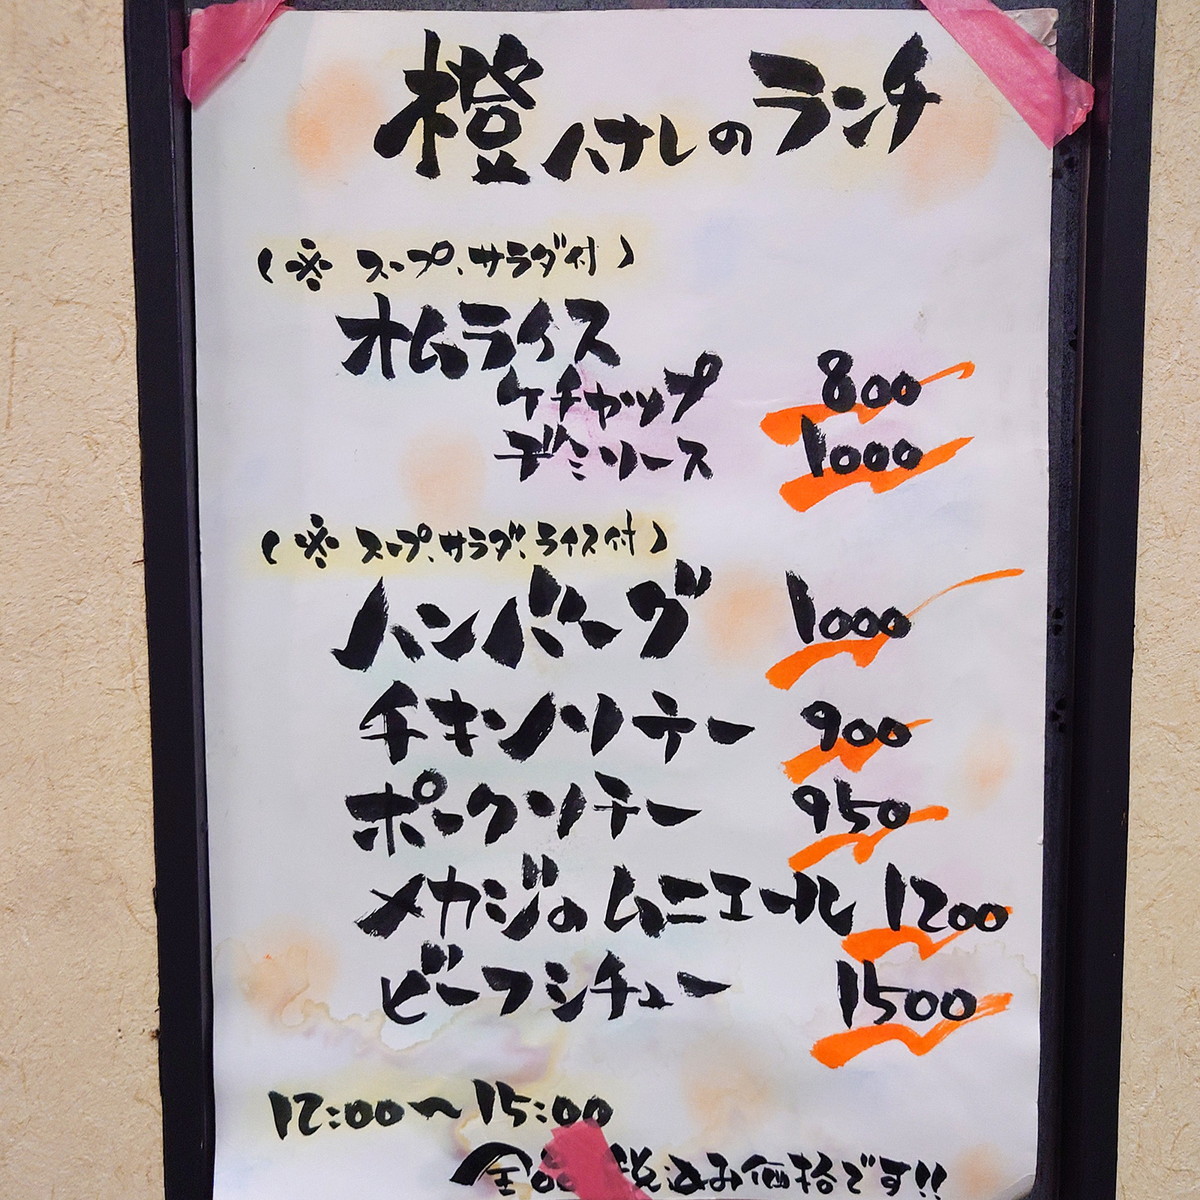 橙 ハナレのランチ
(※ スープ、サラダ付)
オムライス
ケチャップ 800
デミソース 1000
(※ スープ、サラダ、ライス付)
ハンバーグ 1000
チキンソテー 900
ポークソテー 950
メカジのムニエール 1200
ビーフシチュー 1500
12:00〜15:00
全品税込み価格です!!